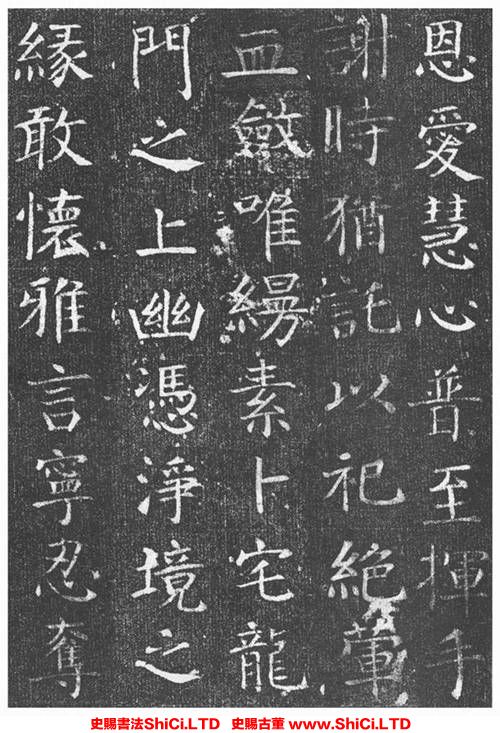 恩愛慧心普至揮手
謝時猶託以祀絕葷
血斂唯縵素卜宅龍
門之上幽憑淨境之
緣敢懷雅言寧忍奪
史賜書法ShiCi.LTD 史賜古董 www.ShiCi.LTD